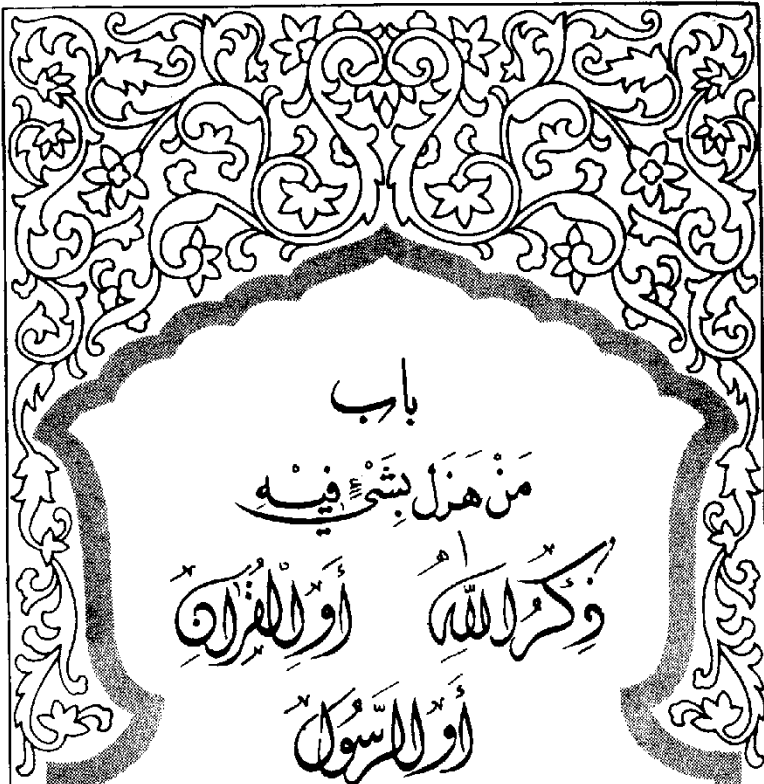 باب
مَنْ هَزَلَ بِشَيْءٍ فِيْهِ
ذِكْرُ اللّٰهِ أَوِ الْقُرْاٰنِ
أَوِ الرَّسُوْلِ